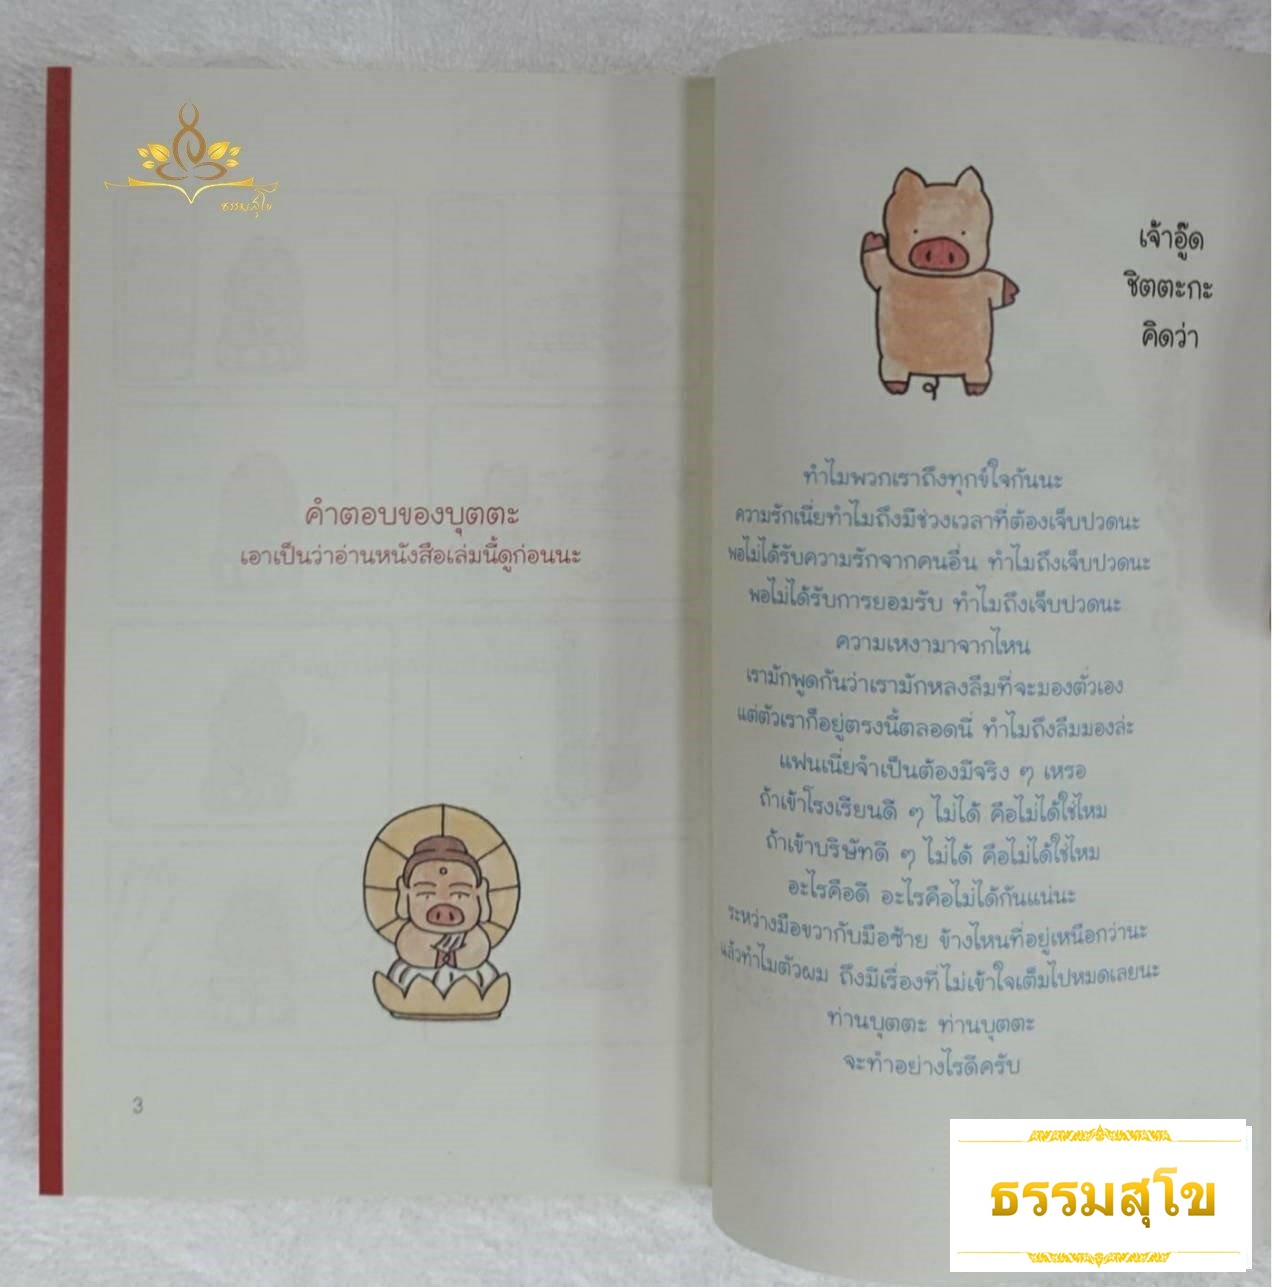 ธรรมสุโข
คำตอบของบุตตะ
เอาเป็นว่าอ่านหนังสือเล่มนี้ดูก่อนนะ
3
เจ้าอู๊ด
ชิตตะกะ
คิดว่า
ทำไมพวกเราถึงทุกข์ใจกันนะ
ความรักเนี่ยทำไมถึงมีช่วงเวลาที่ต้องเจ็บปวดนะ
พอไม่ได้รับความรักจากคนอื่น ทำไมถึงเจ็บปวดนะ
พอไม่ได้รับการยอมรับ ทำไมถึงเจ็บปวดนะ
ความเหงามาจากไหน
เรามักพูดกันว่าเรามักหลงลืมที่จะมองตัวเอง
แต่ตัวเราก็อยู่ตรงนี้ตลอดนี่ ทำไมถึงลืมมองล่ะ
แฟนเนี่ยจำเป็นต้องมีจริง ๆ เหรอ
ถ้าเข้าโรงเรียนดี ๆ ไม่ได้ คือไม่ได้ใช่ไหม
ถ้าเข้าบริษัทดี ๆ ไม่ได้ คือไม่ได้ใช่ไหม
อะไรคือดี อะไรคือไม่ได้กันแน่นะ
ระหว่างมือขวากับมือซ้าย ข้างไหนที่อยู่เหนือกว่านะ
แล้วทำไมตัวผม ถึงมีเรื่องที่ไม่เข้าใจเต็มไปหมดเลยนะ
ท่านบุตตะ ท่านบุตตะ
จะทำอย่างไรดีครับ
ธรรมสุโข